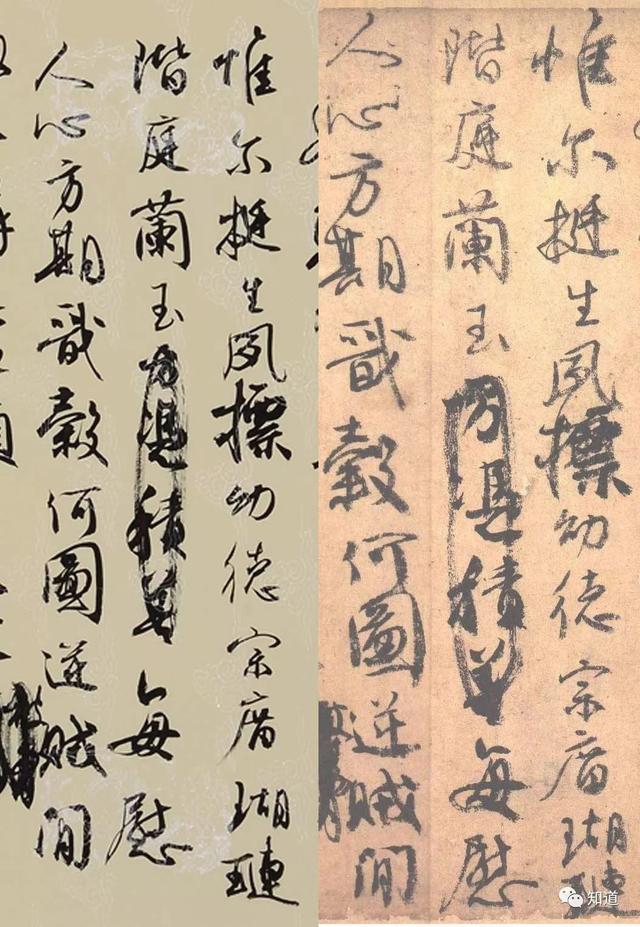 惟尔挺生夙標幼德宗廟瑚璉
階庭蘭玉方憑積善每慰
人心方期戩穀何圖逆賊間
惟尔挺生夙標幼德宗廟瑚璉
階庭蘭玉方憑積善每慰
人心方期戩穀何圖逆賊間
知道